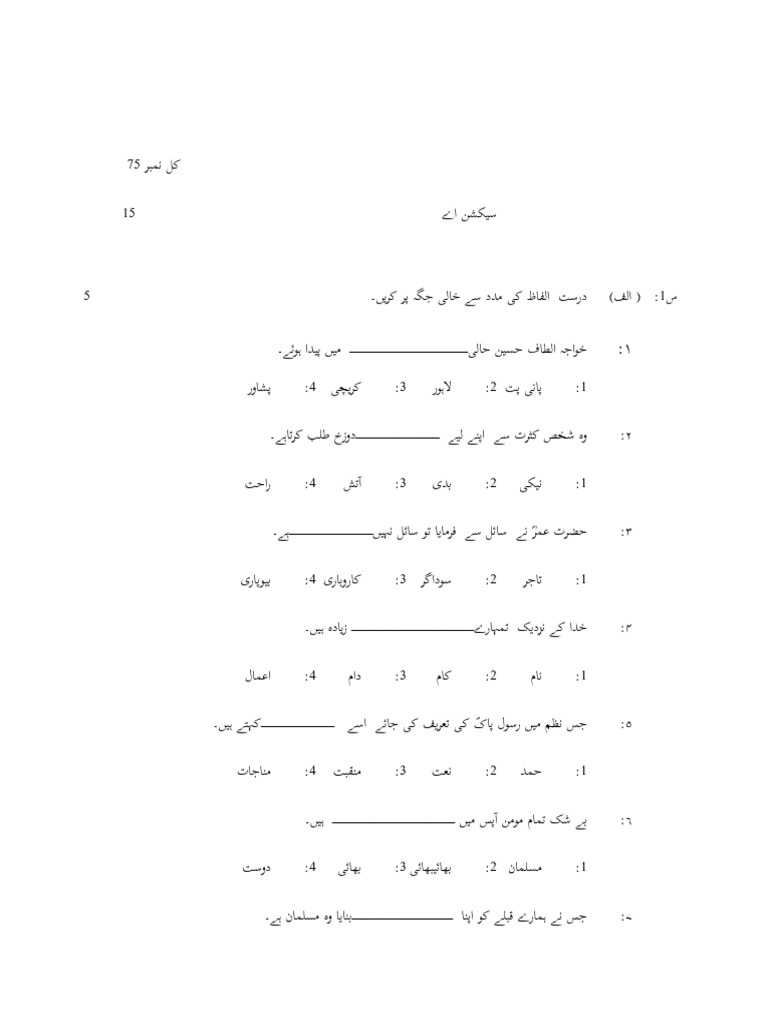 کل نمبر 75
سیکشن اے 15
س1: ( الف) درست الفاظ کی مدد سے خالی جگہ پر کریں۔ 5
۱: خواجہ الطاف حسین حالی________________ میں پیدا ہوئے۔
1: پانی پت 2: لاہور 3: کریچی 4: پشاور
۲: وہ شخص کثرت سے اپنے لیے ___________دوزخ طلب کرتاہے۔
1: نیکی 2: بدی 3: آتش 4: راحت
۳: حضرت عمرؓ نے سائل سے فرمایا تو سائل نہیں___________ہے۔
1: تاجر 2: سوداگر 3: کاروباری 4: بیوپاری
۴: خدا کے نزدیک تمہارے________________ زیادہ ہیں۔
1: نام 2: کام 3: دام 4: اعمال
۵: جس نظم میں رسول پاکؐ کی تعریف کی جائے اسے __________کہتے ہیں۔
1: حمد 2: نعت 3: منقبت 4: مناجات
۶: بے شک تمام مومن آپس میں ________________ ہیں۔
1: مسلمان 2: بھائیبھائی 3: بھائی 4: دوست
۷: جس نے ہمارے قبلے کو اپنا _____________بنایا وہ مسلمان ہے۔